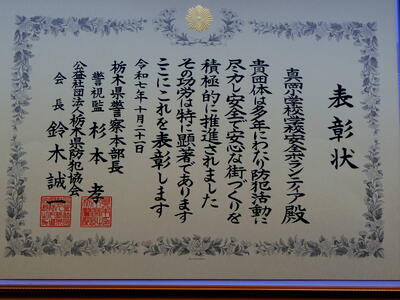 表彰状
真岡小学校学校安全ボランティア殿
貴団体は多年にわたり防犯活動に
尽力し安全で安心な街づくりを
積極的に推進されました
その功労は特に顕著であります
ここにこれを表彰します
令和七年十月二十一日
栃木県警察本部長
警視監 杉本 孝
公益社団法人栃木県防犯協会
会長 鈴木誠一